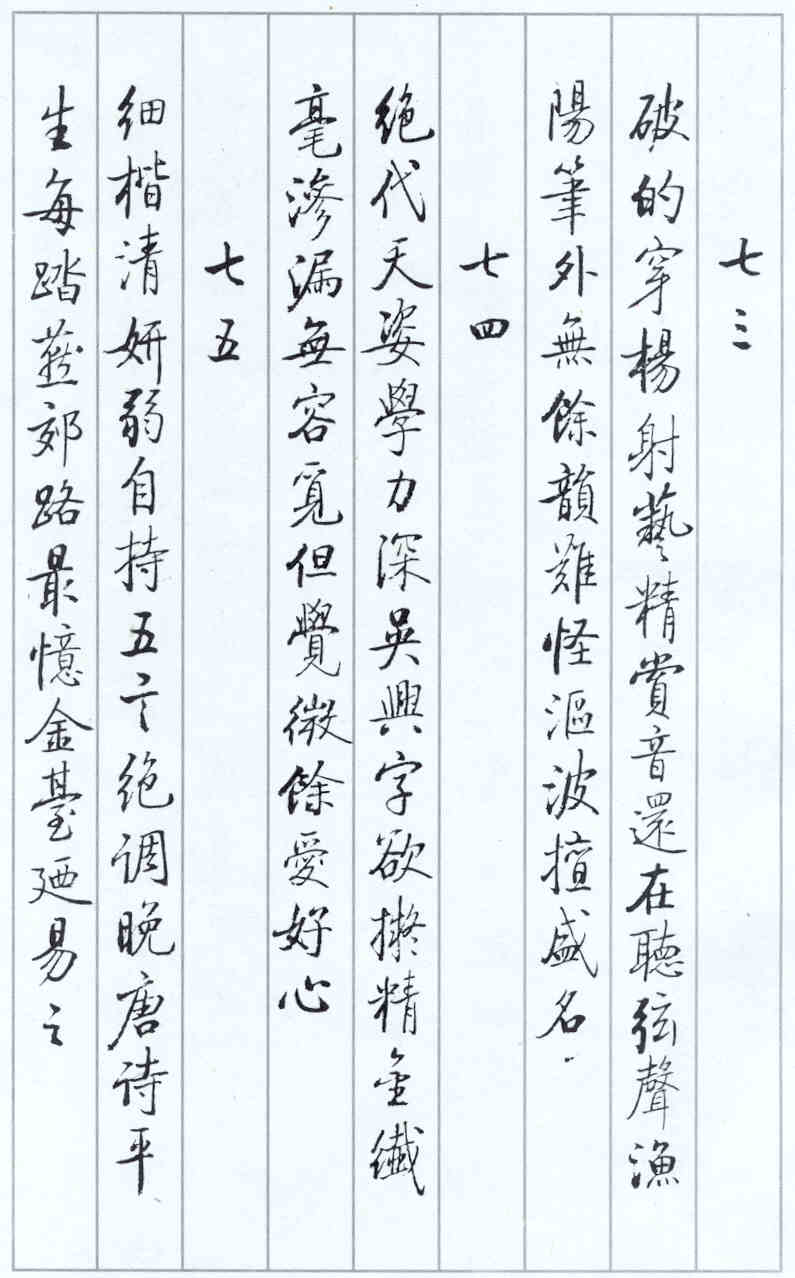 七三
破的穿楊射藝精賞音還在聽弦聲漁
陽筆外無餘韻難怪漚波擅盛名
七四
絶代天姿學力深吳興字欲擬精金纖
毫滲漏無容覓但覺微餘愛好心
七五
細楷清妍弱自持五言絶調晚唐詩平
生每踏燕郊路最憶金臺廼易之